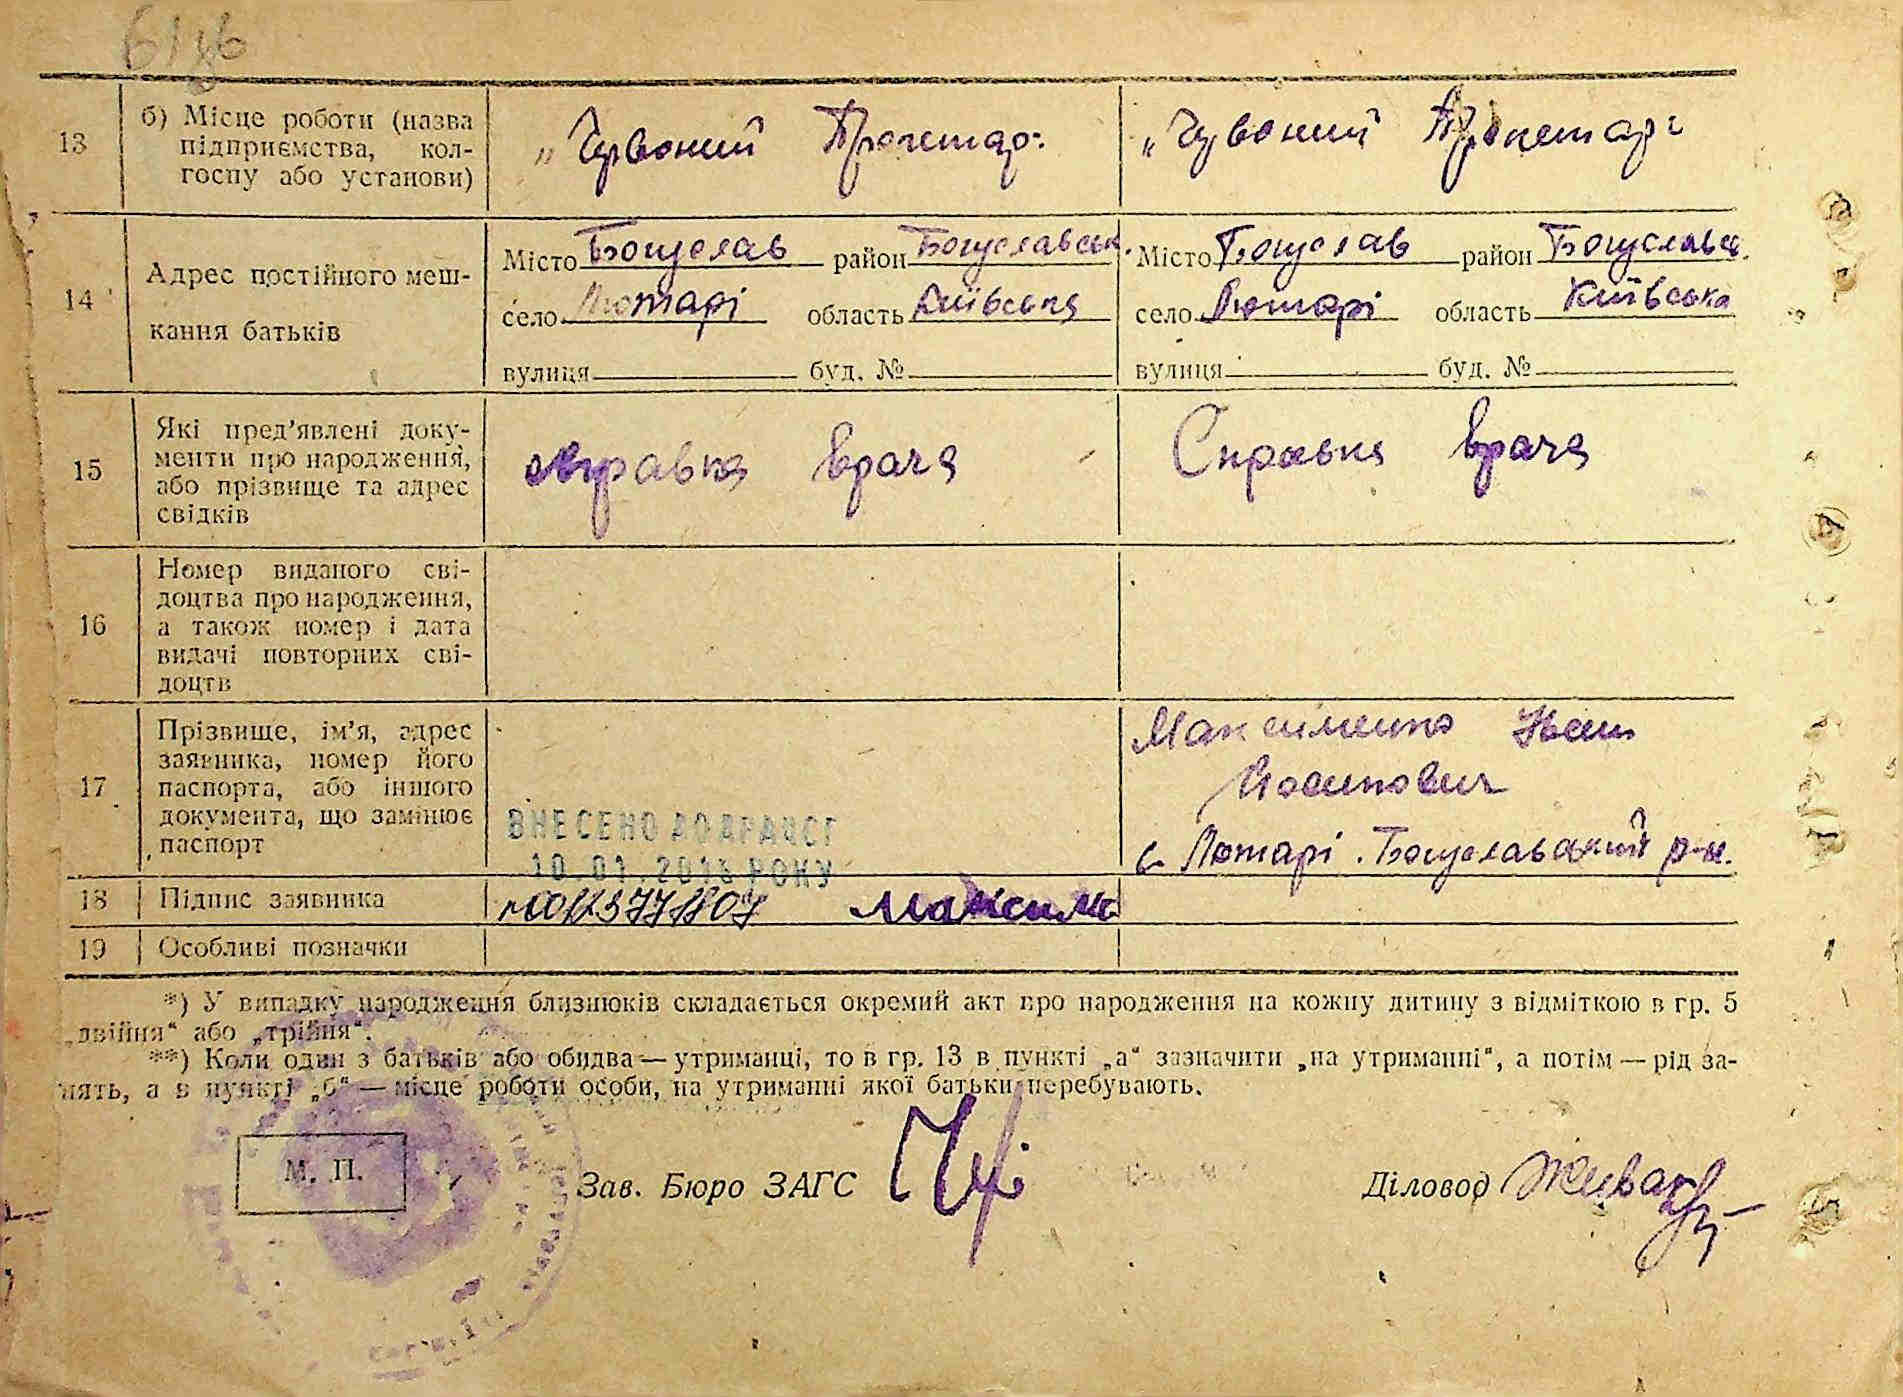 13
б) Місце роботи (назва
підприємства, кол-
госпу або установи)
„Червоний Пролетар"
„Червоний Пролетар"
14
Адрес постійного меш-
кання батьків
Місто Богуслав район Богуславськ.
село Лютарі область Київська
вулиця буд. №
Місто Богуслав район Богуславс.
село Лютарі область Київська
вулиця буд. №
15
Які пред'явлені доку-
менти про народження,
або прізвище та адрес
свідків
Справка врача
Справка врача
16
Номер виданого сві-
доцтва про народження,
а також номер і дата
видачі повторних сві-
доцтв
17
Прізвище, ім'я, адрес
заявника, номер його
паспорта, або іншого
документа, що замінює
паспорт
ВНЕСЕНО ДО ДРАЦСГ
10.01.2018 РОКУ
Максименко Іван
Йосипович
с. Лютарі Богуславський р-н.
18
Підпис заявника
Максиме
19
Особливі позначки
*) У випадку народження близнюків складається окремий акт про народження на кожну дитину з відміткою в гр. 5
„двійня“ або „трійня“.
**) Коли один з батьків або обидва — утриманці, то в гр. 13 в пункті „а“ зазначити „на утриманні“, а потім — рід за-
нять, а в пункті „б“ — місце роботи особи, на утриманні якої батьки перебувають.
М. П.
Зав. Бюро ЗАГС
Діловод